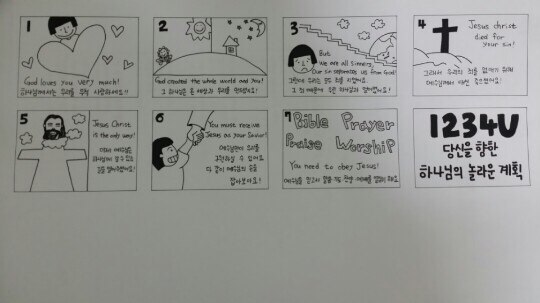 1
God loves you very much!
하나님께서는 우리를 무척 사랑하셔요!
2
God created the whole world and you!
그 하나님은 온 세상과 우리를 만드셨어요!
3
But
We are all sinners.
Our sin seperates us from God!
그런데 우리는 모두 죄를 지었어요.
그 죄 때문에 우린 하나님과 멀어졌어요!
4
Jesus christ
died for
your sin!
그래서 우리의 죄를 없애기 위해
예수님께서 대신 죽으셨어요!
5
Jesus Christ
is the only way!
예수님을
하나님께 갈 수 있는
6
You must receive
Jesus as your Savior!
예수님께서 우리를
구원하실 수 있어요
예수님의 손을
잡아보아요!
7
Bible Prayer
Praise Worship
You need to obey Jesus!
예수님을 믿고서 말씀 기도 찬양 예배를
1234U
당신을 향한
하나님의 놀라운 계획